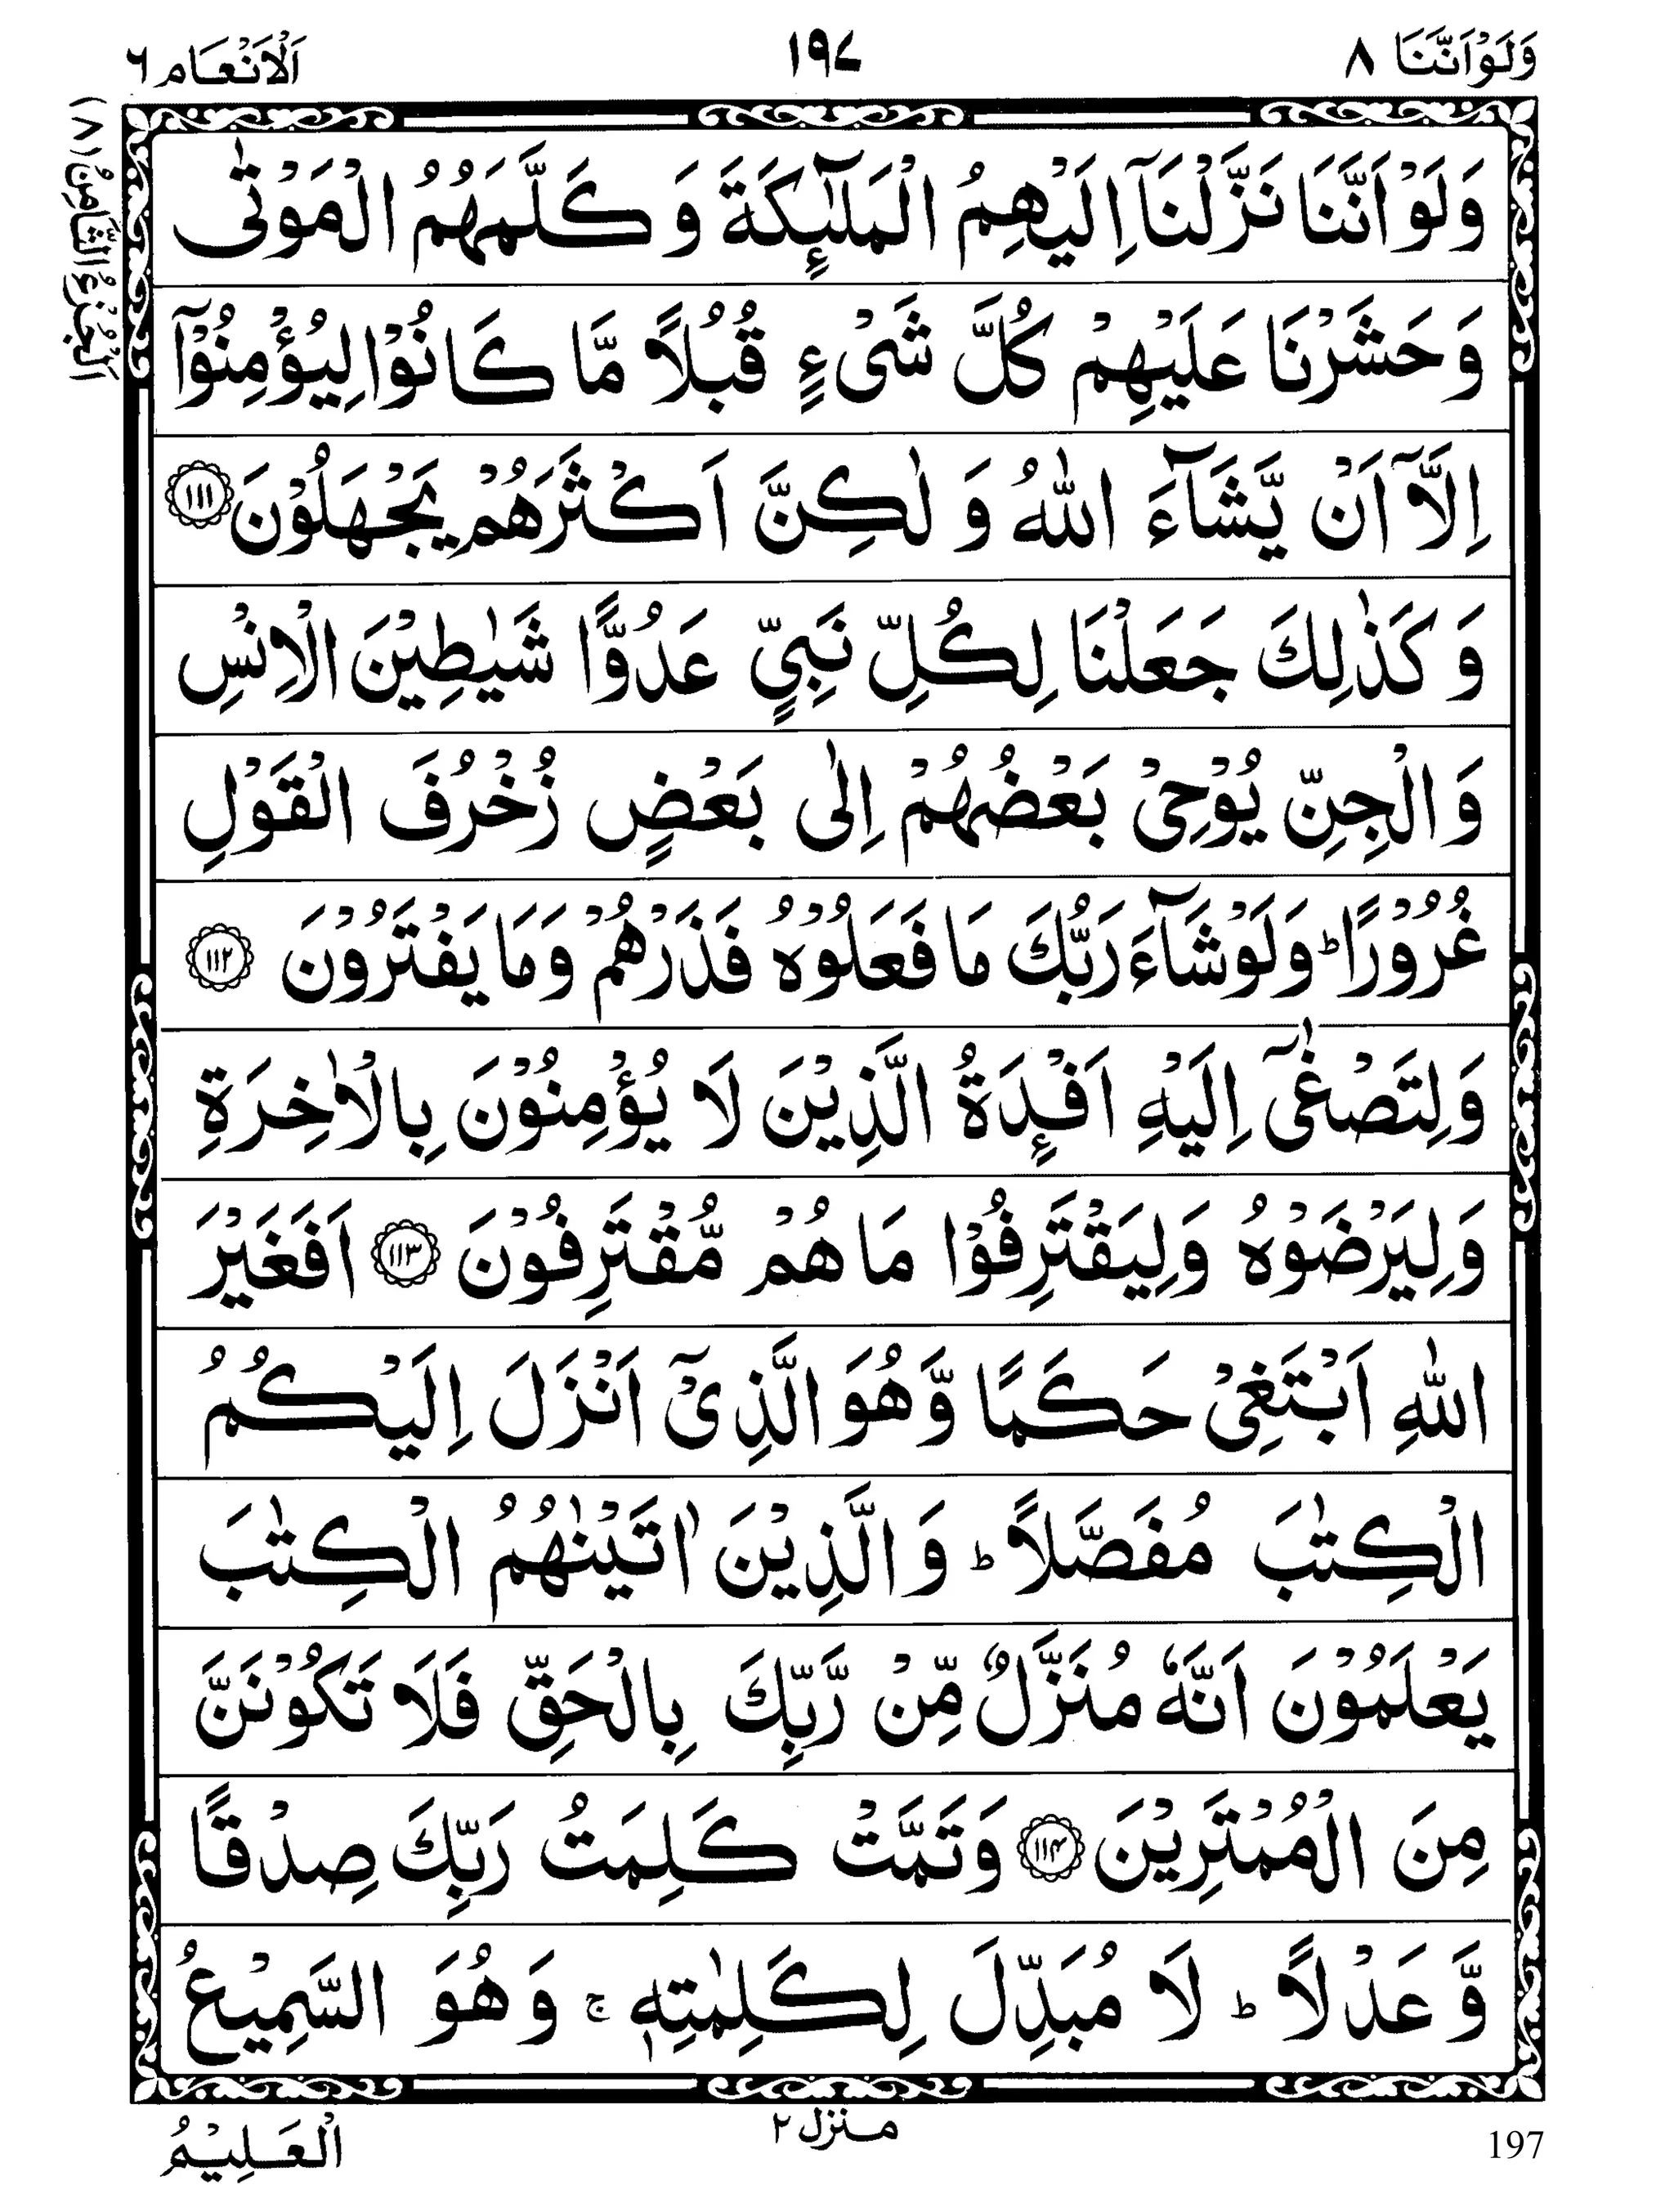 وَلَوْاَنَّنَا ٨
١٩٧
اَلْاَنْعَام ٦
اَلْجُزْءُ الثَّامِنُ (٨)
وَلَوْ اَنَّنَا نَزَّلْنَاۤ اِلَيْهِمُ الْمَلٰٓئِكَةَ وَ كَلَّمَهُمُ الْمَوْتٰى
وَ حَشَرْنَا عَلَيْهِمْ كُلَّ شَىْءٍ قُبُلًا مَّا كَانُوْا لِيُؤْمِنُوْۤا
اِلَّاۤ اَنْ يَّشَآءَ اللّٰهُ وَ لٰكِنَّ اَكْثَرَهُمْ يَجْهَلُوْنَ ١١١
وَ كَذٰلِكَ جَعَلْنَا لِكُلِّ نَبِيٍّ عَدُوًّا شَيٰطِيْنَ الْاِنْسِ
وَ الْجِنِّ يُوْحِىْ بَعْضُهُمْ اِلٰى بَعْضٍ زُخْرُفَ الْقَوْلِ
غُرُوْرًا ؕ وَلَوْ شَآءَ رَبُّكَ مَا فَعَلُوْهُ فَذَرْهُمْ وَمَا يَفْتَرُوْنَ ١١٢
وَلِتَصْغٰۤى اِلَيْهِ اَفْئِدَةُ الَّذِيْنَ لَا يُؤْمِنُوْنَ بِالْاٰخِرَةِ
وَلِيَرْضَوْهُ وَلِيَقْتَرِفُوْا مَا هُمْ مُّقْتَرِفُوْنَ ١١٣ اَفَغَيْرَ
اللّٰهِ اَبْتَغِىْ حَكَمًا وَّهُوَ الَّذِىْۤ اَنْزَلَ اِلَيْكُمُ
الْكِتٰبَ مُفَصَّلًا ؕ وَ الَّذِيْنَ اٰتَيْنٰهُمُ الْكِتٰبَ
يَعْلَمُوْنَ اَنَّهٗ مُنَزَّلٌ مِّنْ رَّبِّكَ بِالْحَقِّ فَلَا تَكُوْنَنَّ
مِنَ الْمُمْتَرِيْنَ ١١٤ وَتَمَّتْ كَلِمَتُ رَبِّكَ صِدْقًا
وَّ عَدْلًا ؕ لَا مُبَدِّلَ لِكَلِمٰتِهٖ ۚ وَ هُوَ السَّمِيْعُ
الْعَلِيْمُ
منزل ٢
197